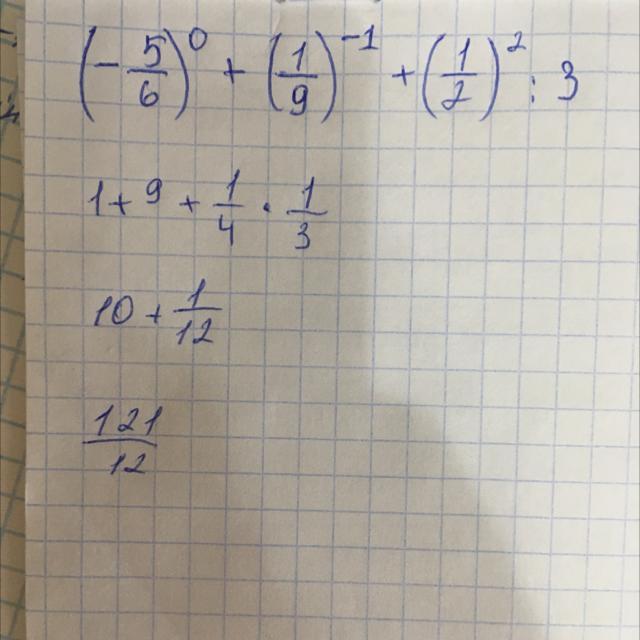 (-5/6)^0 + (1/9)^-1 + (1/2)^2 : 3
1 + 9 + 1/4 · 1/3
10 + 1/12
121/12